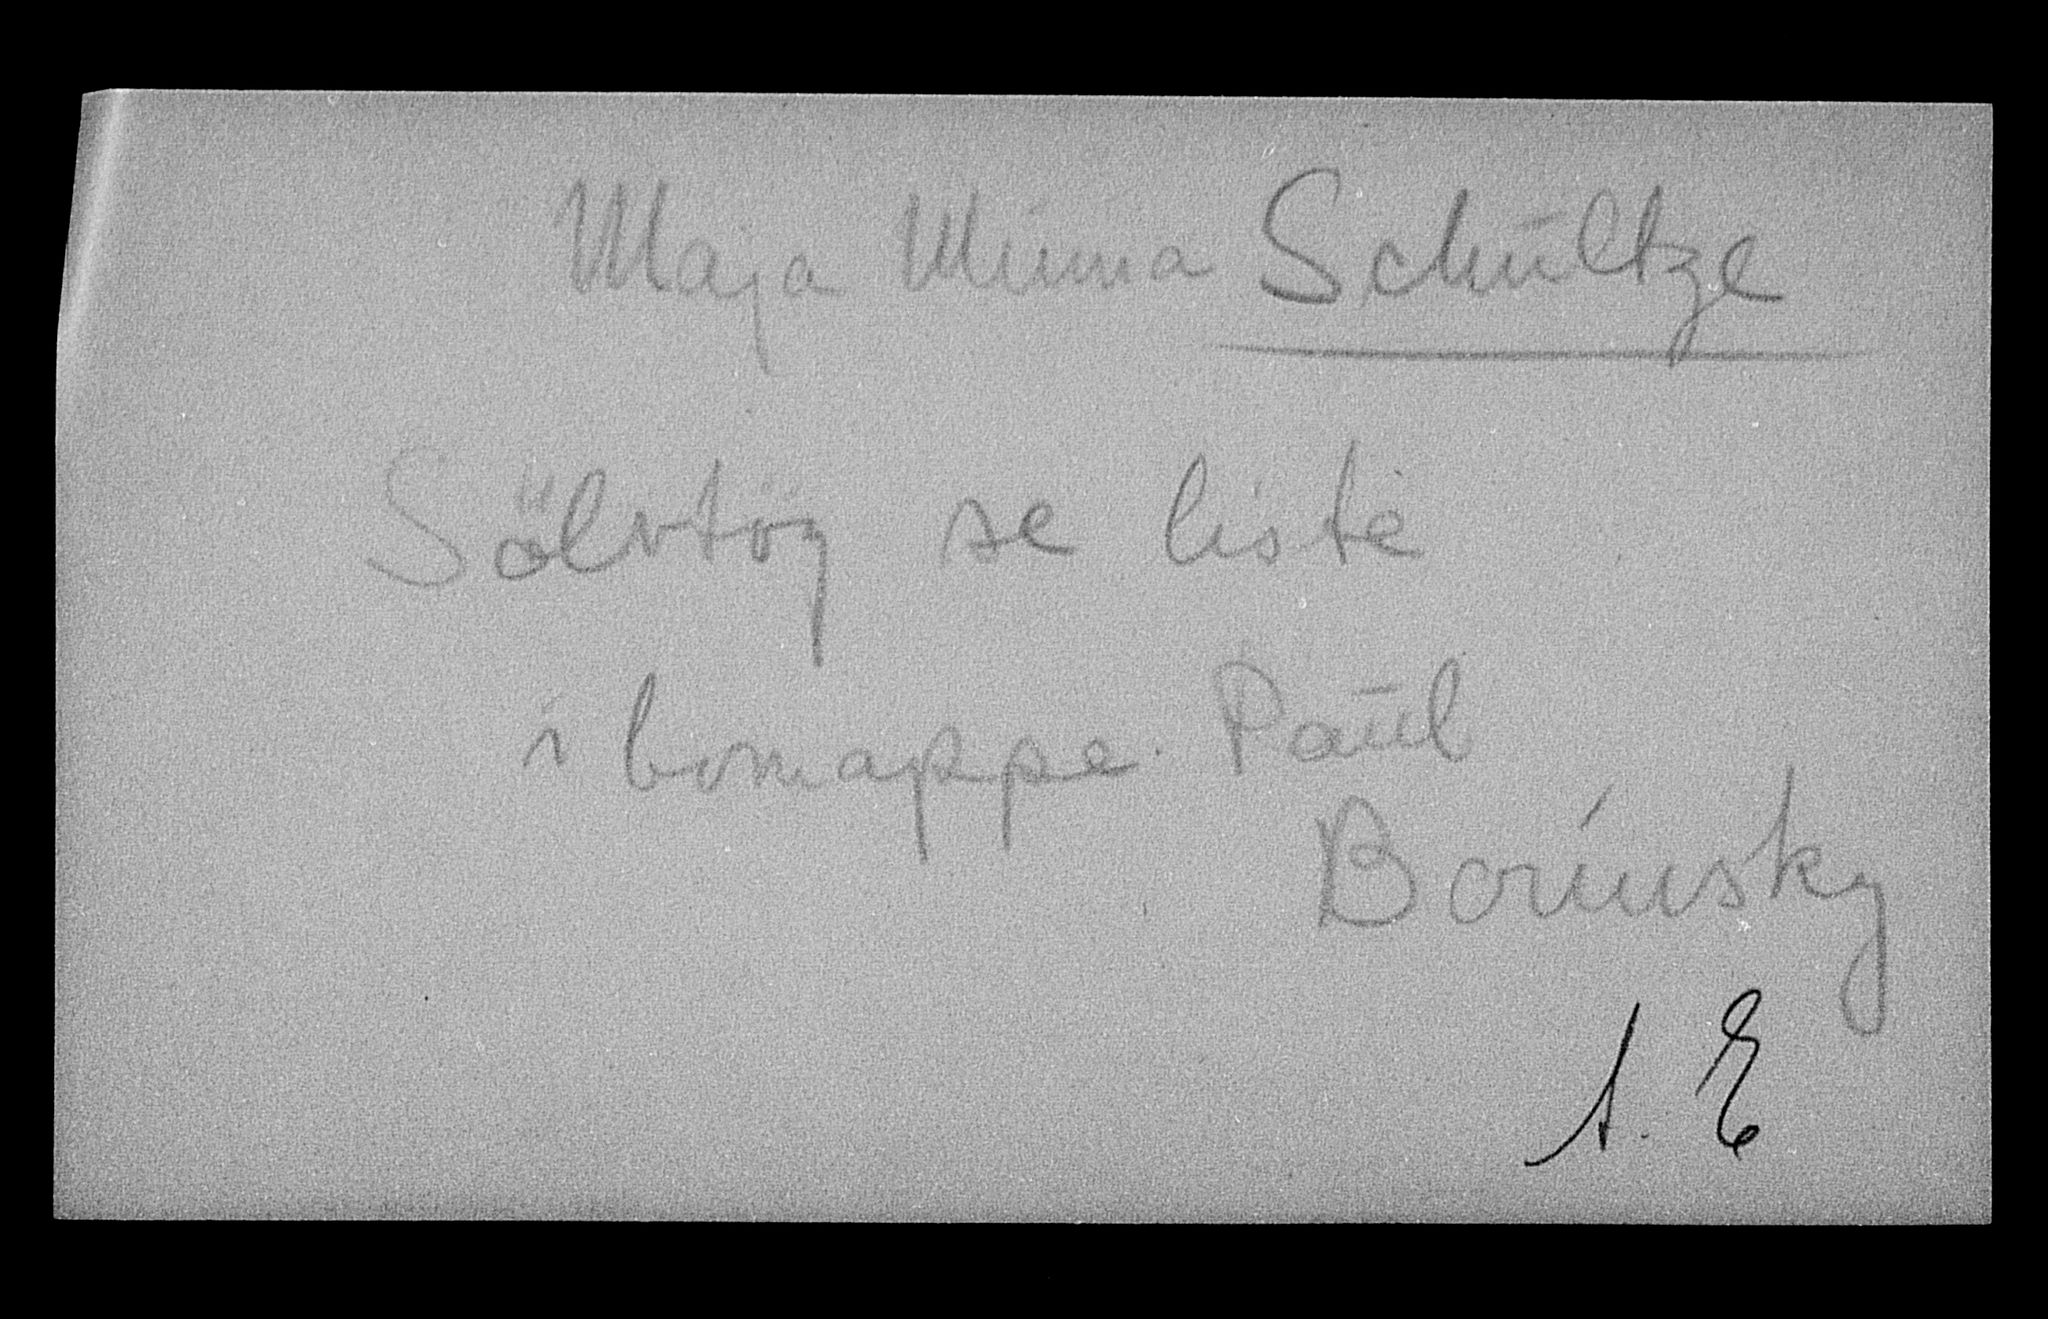 Maja Minna Schultze
Sölvtöy se liste
i bomappe. Paul
Borinsky
A. E